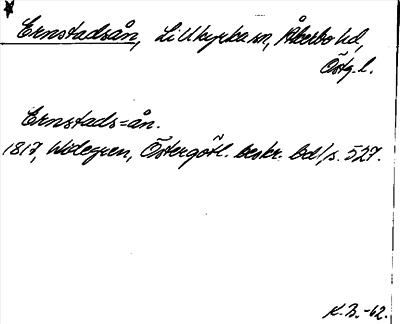 Ernstadsån, Lillkyrka sn, Åkerbo hd,
Östg. l.
Ernstads=ån.
1817, Widegren, Östergötl. beskr. bd 1, s. 527.
K. B. -62.